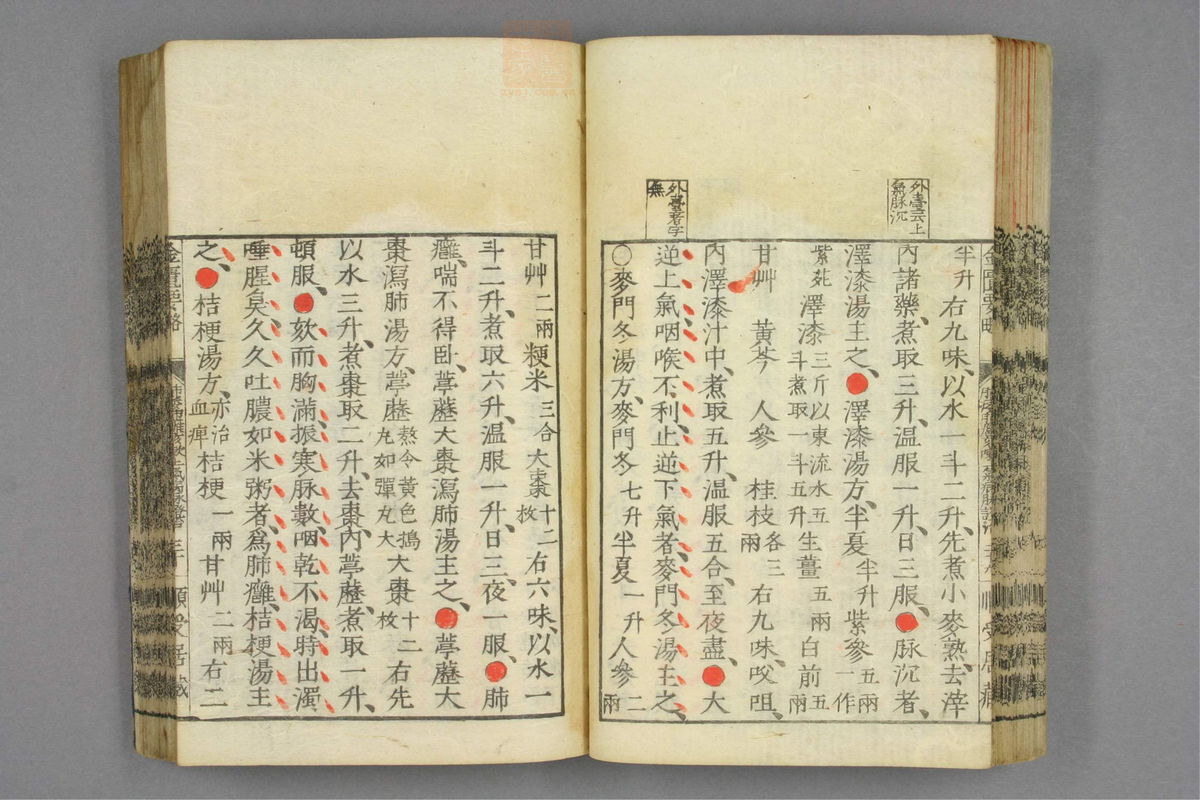 外臺云上
無脉沉
外臺者字
無
半升右九味、以水一斗二升、先煮小麥熟、去滓
內諸藥、煮取三升、温服一升、日三服、脉沉者、
澤漆湯主之、澤漆湯方、半夏半升紫參五兩一作
紫菀澤漆三斤以東流水五斗煮取一斗五升生薑五兩白前五兩
甘艸 黃芩 人參 桂枝各三兩右九味、㕮咀、
內澤漆汁中、煮取五升、温服五合、至夜盡、大
逆上氣、咽喉不利、止逆下氣者、麥門冬湯主之、
〇麥門冬湯方、麥門冬七升半夏一升人參二兩
甘艸二兩粳米三合大棗十二枚右六味、以水一
斗二升、煮取六升、温服一升、日三夜一服、肺
癰、喘不得卧、葶藶大棗瀉肺湯主之、葶藶大
棗瀉肺湯方、葶藶熬令黃色搗丸如彈丸大大棗十二枚右先
以水三升、煮棗取二升、去棗、內葶藶、煮取一升、
頓服、欬而胸滿、振寒脉數、咽乾不渴、時出濁
唾腥臭、久久吐膿如米粥者、爲肺癰、桔梗湯主
之、桔梗湯方、亦治血痺桔梗一兩甘艸二兩右二
金匱要略